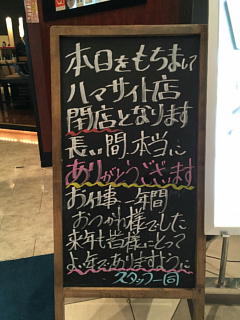 本日をもちまして
ハマサイト店
閉店となります
長い間、本当に
ありがとうございます
お仕事、一年間
おつかれ様でした
来年も皆様にとって
よい年でありますように
スタッフ一同